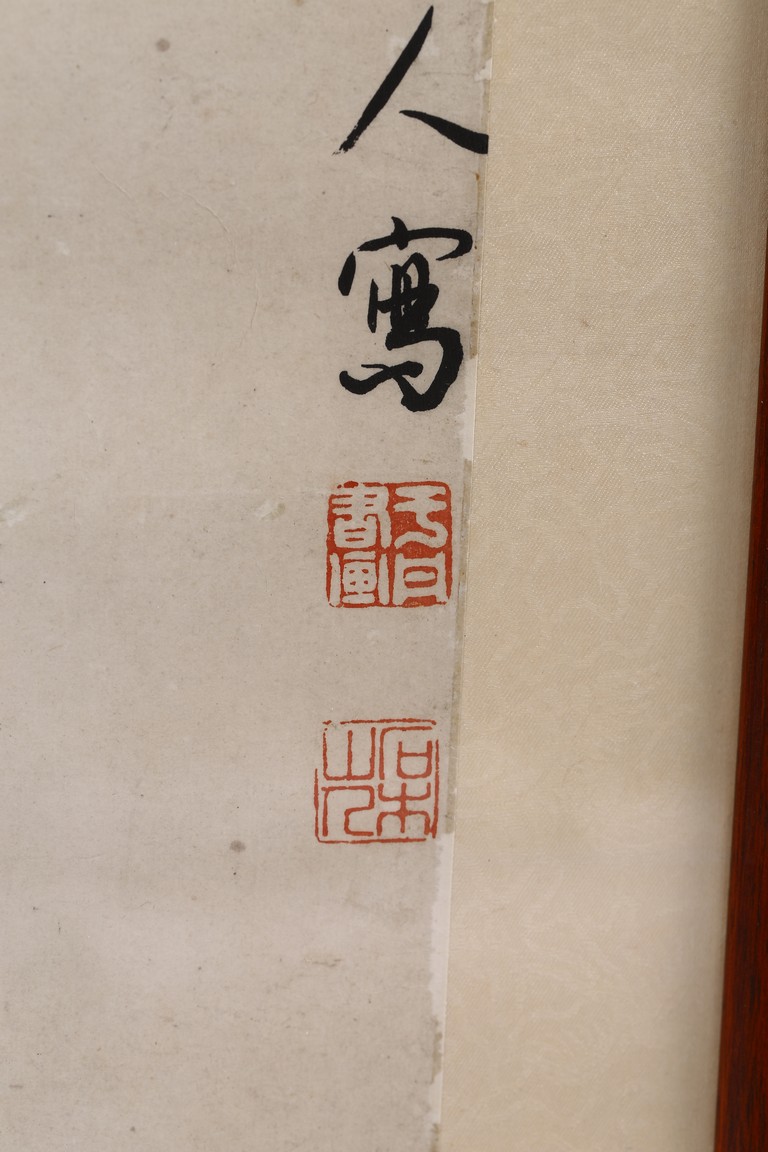 人寫
書画
石木山人